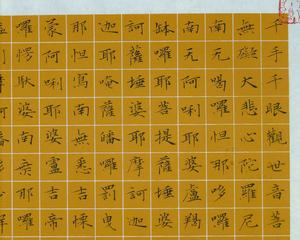 千手千眼觀世音菩
無礙大悲心陀羅尼
南无喝囉怛那哆囉
南无阿唎耶婆盧羯
缽囉耶菩提薩埵婆
訶薩埵婆耶摩訶迦
迦耶唵薩皤囉罰曳
耶怛寫南無悉吉慄
蒙阿唎耶婆盧吉帝
囉愕馱婆南亲那囉